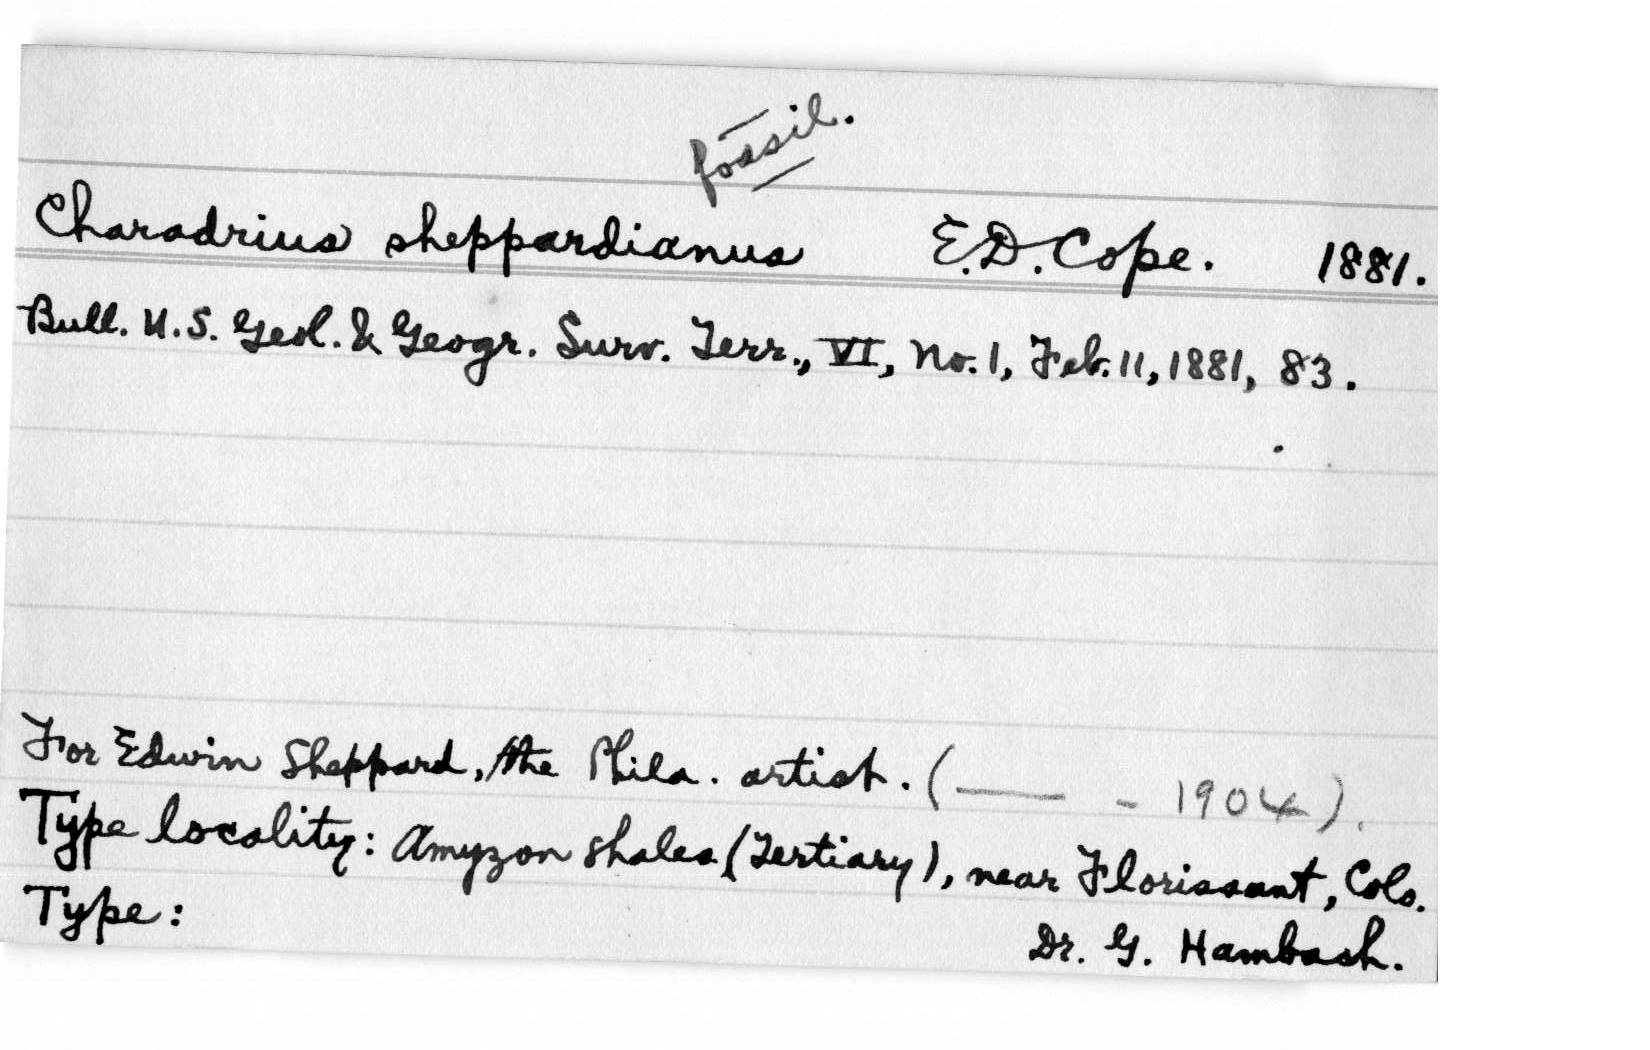 fossil.
Charadrius sheppardianus E.D. Cope. 1881.
Bull. U.S. Geol. & Geogr. Surv. Terr., VI, No. 1, Feb. 11, 1881, 83.
For Edwin Sheppard, the Phila. artist. (—— - 1904).
Type locality: Amyzon shales (Tertiary), near Florissant, Colo.
Type: Dr. G. Hambach.